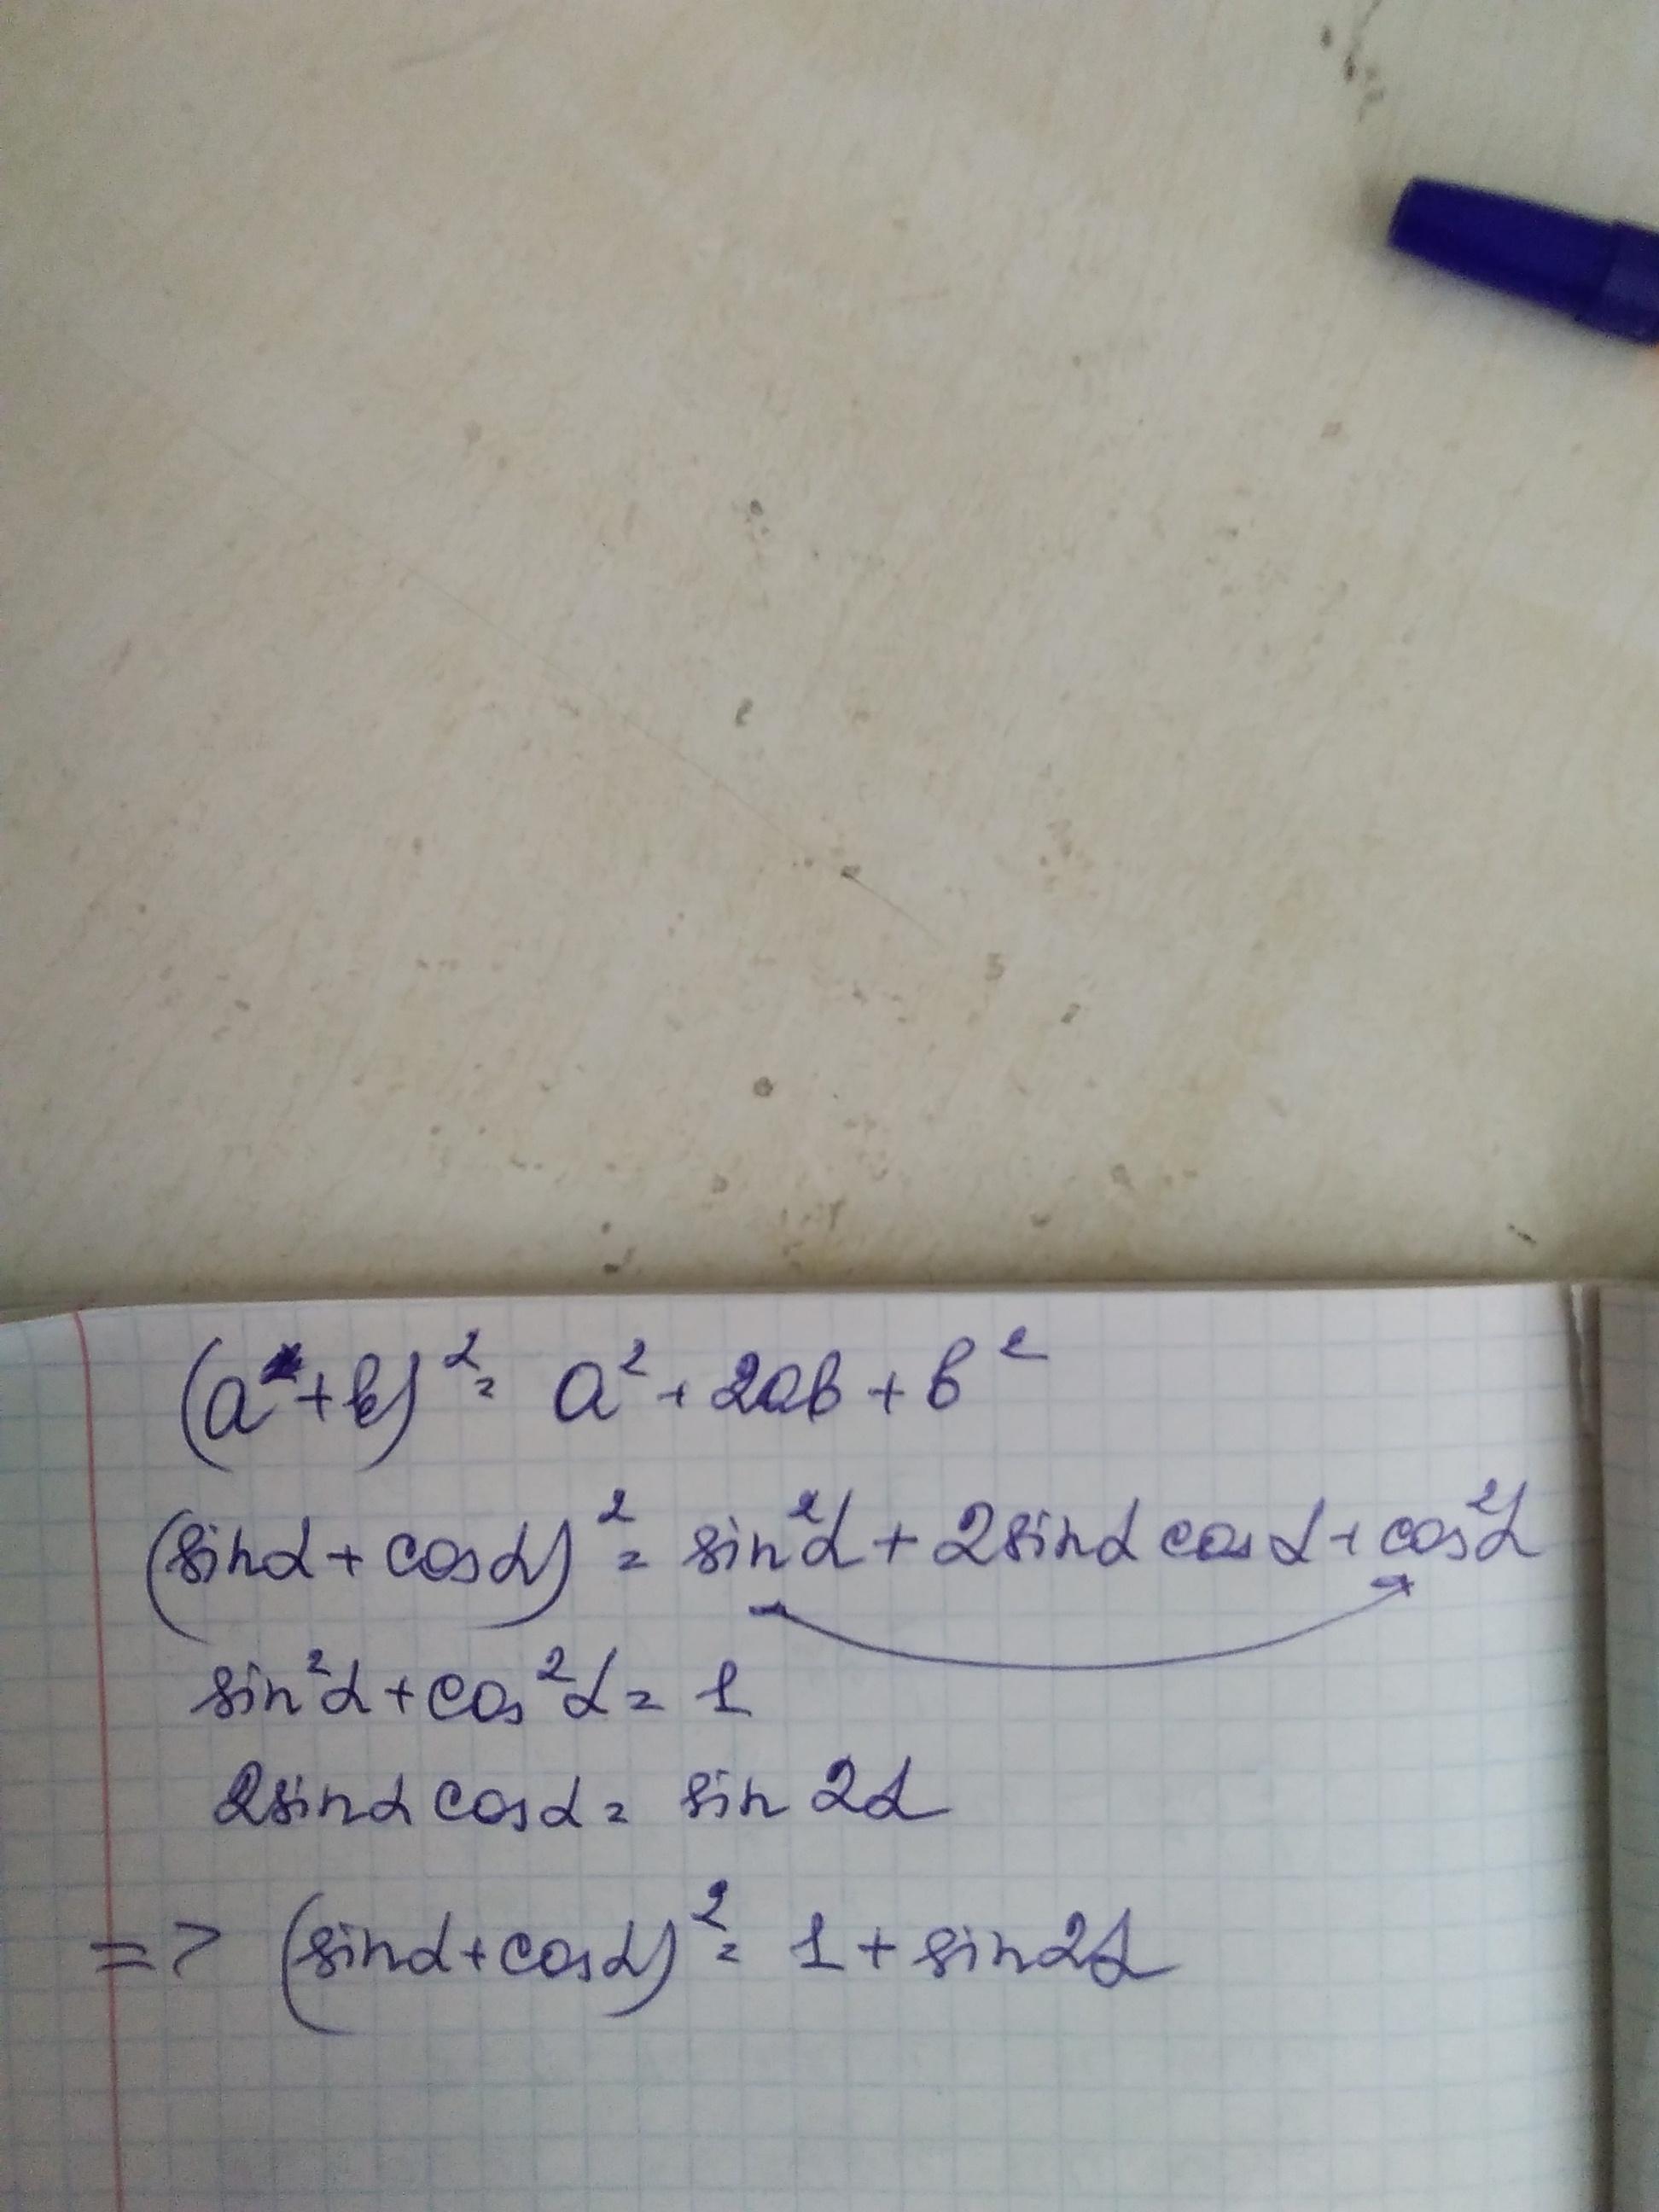 (a+b)² = a² + 2ab + b²
(sinα + cosα)² = sin²α + 2sinα cosα + cos²α
sin²α + cos²α = 1
2sinα cosα = sin 2α
=> (sinα + cosα)² = 1 + sin2α